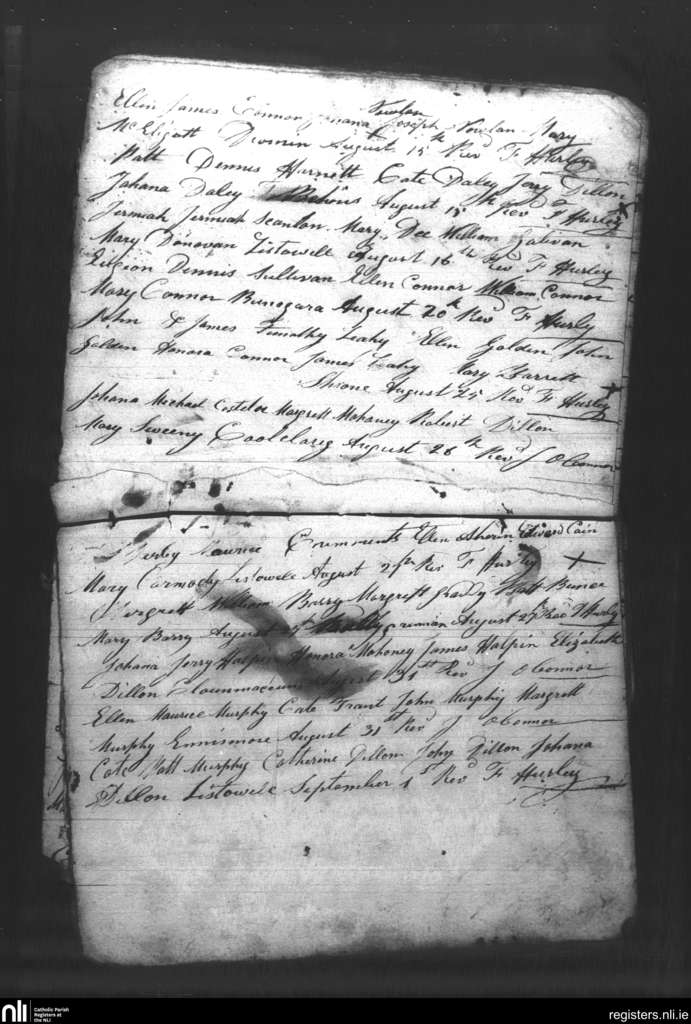 Nowlan
Ellen James Connor Johana Joseph Nowlan Mary
McEligott Dromin August 15th Revd F Hurley
Patt Dennis Harnett Cate Daley Jerry Dillon
Johana Daley Behins August 15th Revd F Hurley
Jermiah Jermiah Scanlon Mary Dee William Galivan
Mary Donovan Listowell August 16th Revd F Hurley
Dennis Sullivan Ellen Connor William Connor
Mary Connor Bunagara August 20th Revd F Hurly
John & James Timothy Leahy Ellen Golden John
Golden Honora Connor James Leahy Mary Barrett
Shrone August 25 Revd F Hurley
Johana Michael Costeloe Margrett Mahoney Robert Dillon
Mary Sweeny Coolclarig August 26th Revd J OConnor
Maurice Ellen Aherin Edward Cain
Mary Carmody Listowele August Rev F Hurly
Margrett William Barry Margrett Patt Bunce
Mary Barry August August 27th Revd F Hurley
Johana Jerry Halpin Honora Mahoney James Halpin Elizabeth
Dillon August 31st Revd J OConnor
Ellen Maurice Murphy Cate Trant John Murphy Margrett
Murphy Ennismore August 31st Revd J OConnor
Cate Patt Murphy Catherine Dillon John Dillon Johana
Dillon Listowele September 1st Revd F Hurley
nli Catholic Parish
Registers at
the NLI
registers.nli.ie